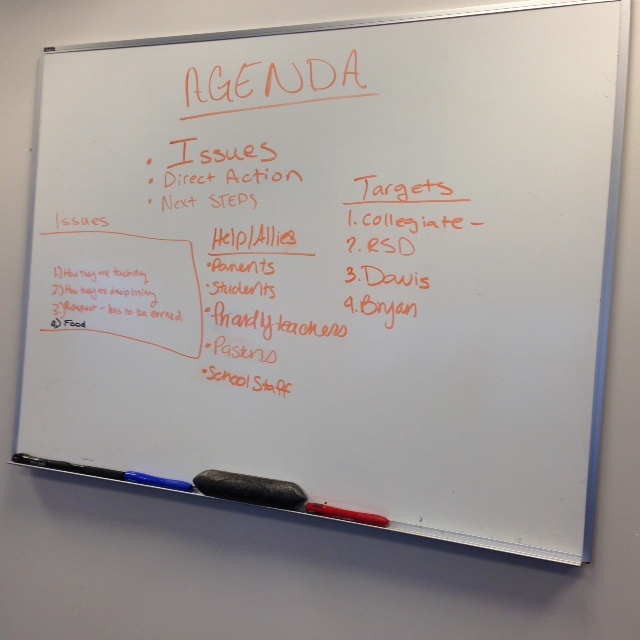 AGENDA
• Issues
• Direct Action
• Next STEPS
Issues
1) How they are teaching
2) How they are disciplining
3) Respect - has to be earned
4) Food
Help/Allies
• Parents
• Students
• Friendly teachers
• Pastors
• School Staff
Targets
1. Collegiate -
2. RSD
3. Davis
4. Bryan